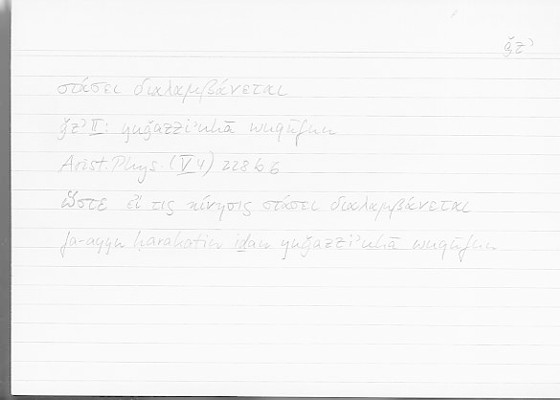 ǧzʾ
στάσει διαλαμβάνεται
ǧzʾ II: yuǧazziʾuhā wuqūfun
Arist. Phys. (V 4) 228 b 6
ὥστε εἴ τις κίνησις στάσει διαλαμβάνεται
fa-ayyu ḥarakatin iḏan yuǧazziʾuhā wuqūfun